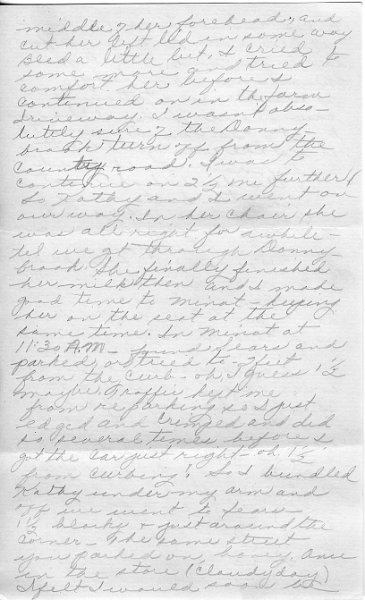 middle of her forehead, and
cut her left lid in some way
bled a little bit, I cried
some more and tried to
comfort her before I
continued on in the farm
driveway. I wasn't abso-
lutely sure of the Donny-
brook turn off from the
country road. I was to
continue on 2½ mi further!
So Kathy and I went on
our way. In her chair she
was all right for awhile -
til we got through Donny-
brook. She finally finished
her milk then and I made
good time to Minot - keeping
her on the seat at the
same time. In Minot at
11:30 A.M - found Sears and
parked, or tried to - 2 feet
from the curb - oh, I guess 1½
maybe. Traffic kept me
from reparking so I just
edged and cramped and did
so several times before I
got the car just right - oh 1½
from curbing! So I bundled
Kathy under my arm and
off we went to Sears
1½ blocks + just around the
corner - The same street
you parked on honey. Once
in the store (cloudy day)
I felt I would